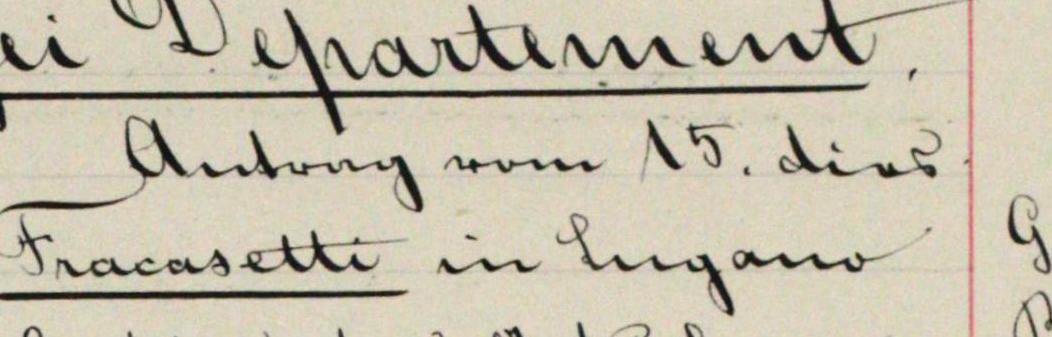 ei Departement.
Antrag vom 15. dies
Fracasetti in Lugano